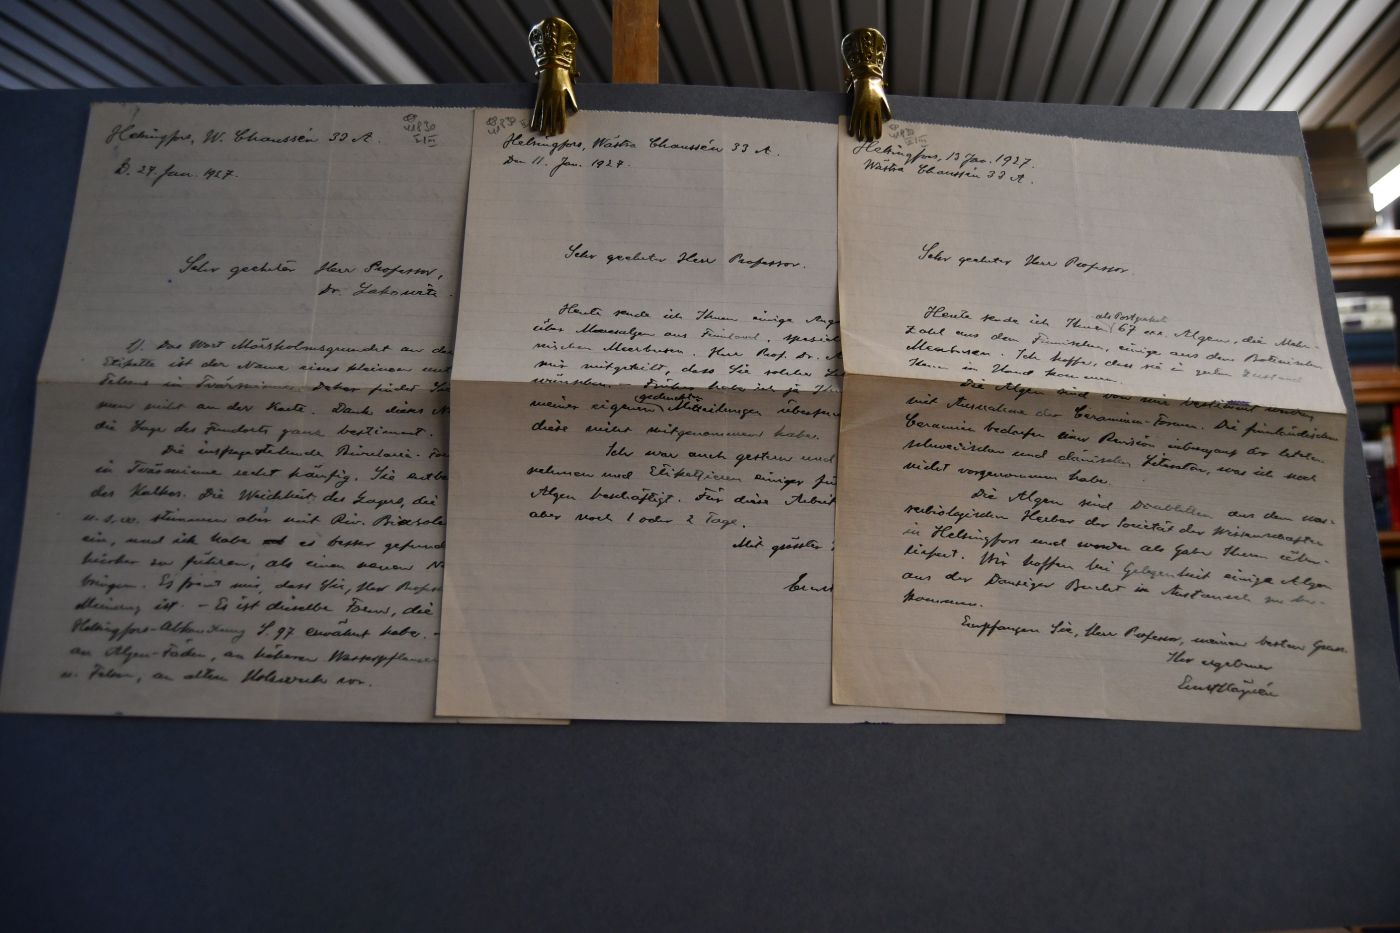 Helsingfors, W. Chaussén 33 A.
D. 27. Jan. 1927.
Sehr geehrter Herr Professor,
Dr. Lakowitz.
1). Das Wort Mörsholmsgrundet an der
Etikette ist der Name eines kleinen
Felsens in Tvärminne. Daher findet
man nicht an der Karte. Dank dieses
die Lage des Fundorts ganz bestimmt.
Die inkrustierende Rivularia-
in Tvärminne recht häufig. Sie
des Kalkes. Die Weichheit des Lagers, die
u.s.w. stimmen aber mit Riv. Biasole
ein, und ich habe es besser gefunden
hierher zu führen, als einen neuen
bringen. Es freut mir, dass Sie, Herr Profess
Meinung ist. – Es ist dieselbe Form, die
Helsingfors-Abhandlung S. 97 erwähnt habe. –
an Algen-Fäden, an höheren Wasserpflanzen
u. Felsen, an altem Holzwerk vor.
Helsingfors, Wästra Chaussén 33 A.
Den 11. Jan. 1927.
Sehr geehrter Herr Professor.
Heute sende ich Ihnen einige Ang
über Meeresalgen aus Finland, speziel
nischen Meerbusen. Herr Prof. Dr.
mir mitgeteilt, dass Sie solche
wünschen. – Früher habe ich ja Ih
meiner eigenen gedruckten Mitteilungen
diese nicht mitgenommen habe.
Ich war auch gestern und
nehmen und Etikettieren einiger
Algen beschäftigt. Für diese Arbeit
aber noch 1 oder 2 Tage.
Mit grösster
Ernst
Helsingfors, 13 Jan. 1927.
Wästra Chaussén 33 A.
Sehr geehrter Herr Professor
Heute sende ich Ihnen als Postpaket 67 Algen, die Mehr-
zahl aus dem Finnischen, einige aus dem Botnischen
Meerbusen. Ich hoffe, dass sie in gutem Zustand
Ihnen in Hand kommen.
Die Algen sind von mir bestimmt worden,
mit Ausnahme der Ceramium-Formen. Die finnländischen
Ceramien bedürfen einer Revision inbezug auf der letzten
schwedischen und dänischen Literatur, was ich noch
nicht vorgenommen habe.
Die Algen sind Doubletten aus dem mee-
resbiologischen Herbar der Societät der Wissenschaften
in Helsingfors und werden als Gabe Ihnen über-
liefert. Wir hoffen bei Gelegenheit einige Algen
aus der Danziger Bucht in Austausch zu be-
kommen.
Empfangen Sie, Herr Professor, meinen besten Gruss.
Ihr ergebener
Ernst Häyrén